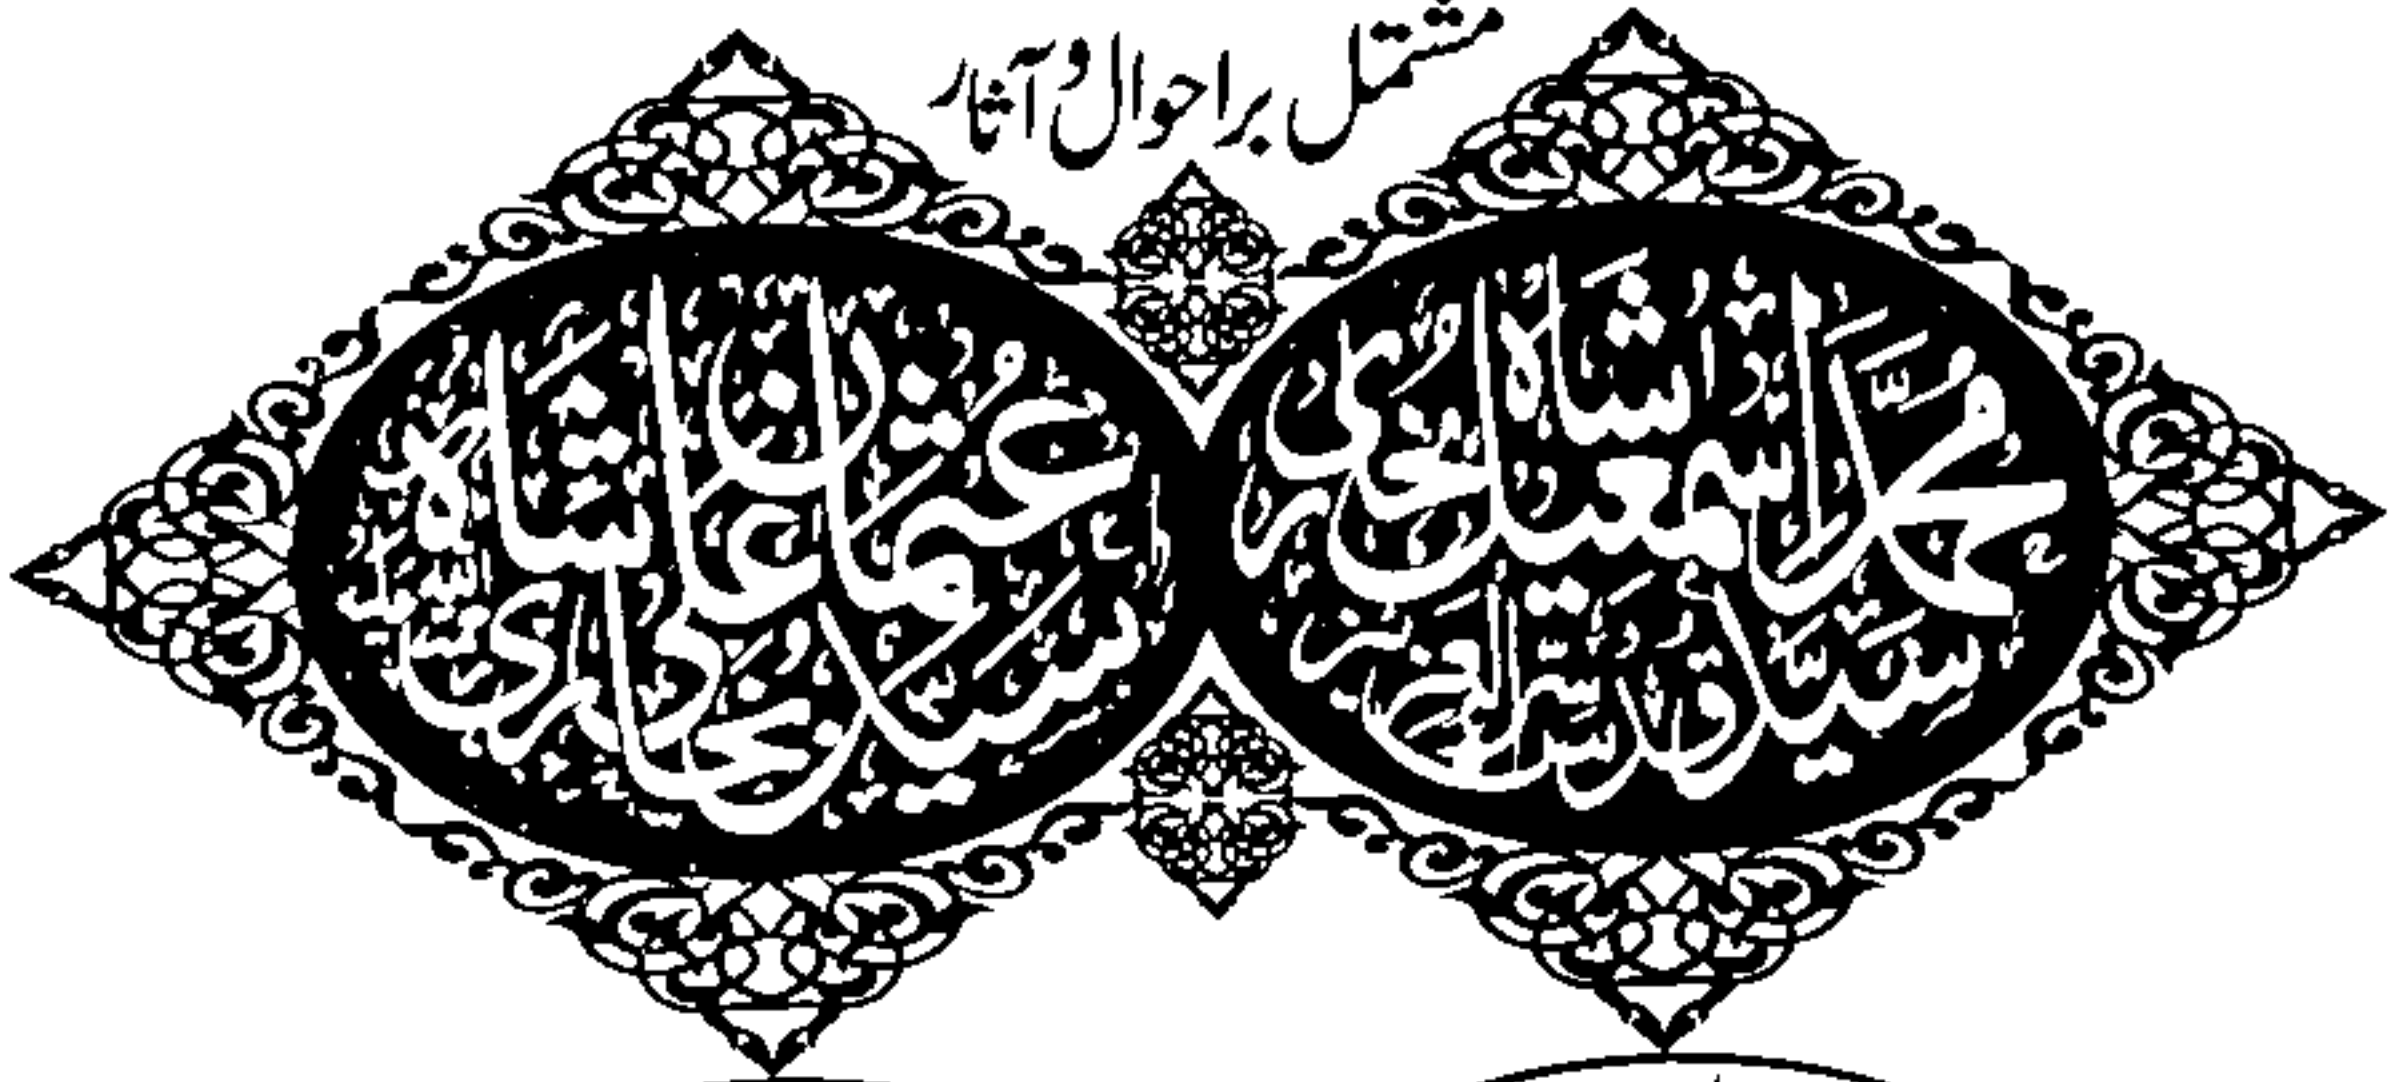 مشتمل بر احوال و آثار
سید محمد اسمعیل شاہ بخاری
قدس سرہ العزیز
سید عثمان علی شاہ بخاری